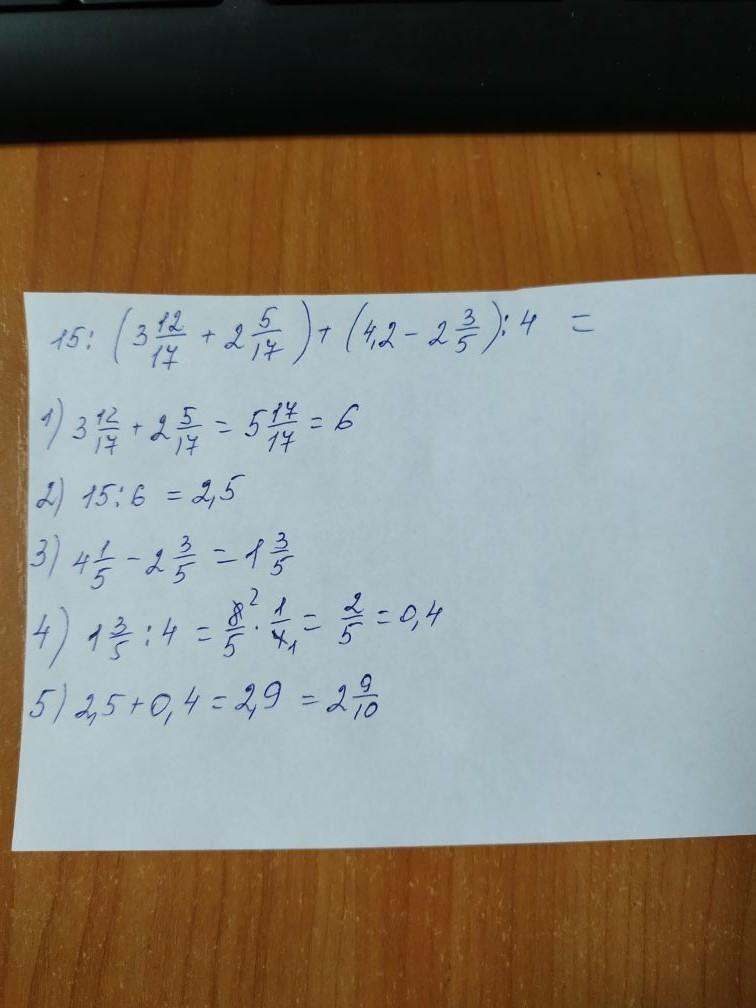 15 : (3 12/17 + 2 5/17) + (4,2 − 2 3/5) : 4 =
1) 3 12/17 + 2 5/17 = 5 17/17 = 6
2) 15 : 6 = 2,5
3) 4 1/5 − 2 3/5 = 1 3/5
4) 1 3/5 : 4 = 8²/5 · 1/4₁ = 2/5 = 0,4
5) 2,5 + 0,4 = 2,9 = 2 9/10